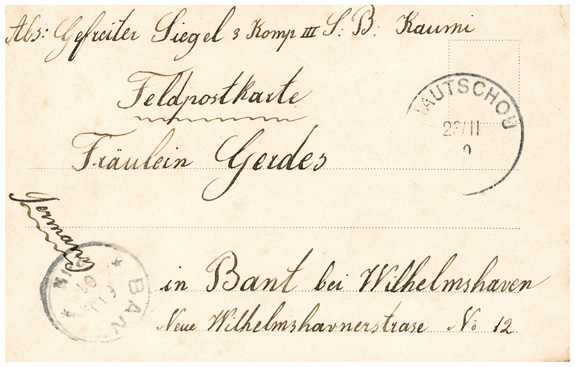 Abs: Gefreiter Siegel 3 Komp III S. B. Kaumi
Feldpostkarte
TAUTSCHOU
23/11
Fräulein Gerdes
Germany
in Bant bei Wilhelmshaven
BANT
Neue Wilhelmshavnerstrase No 12.